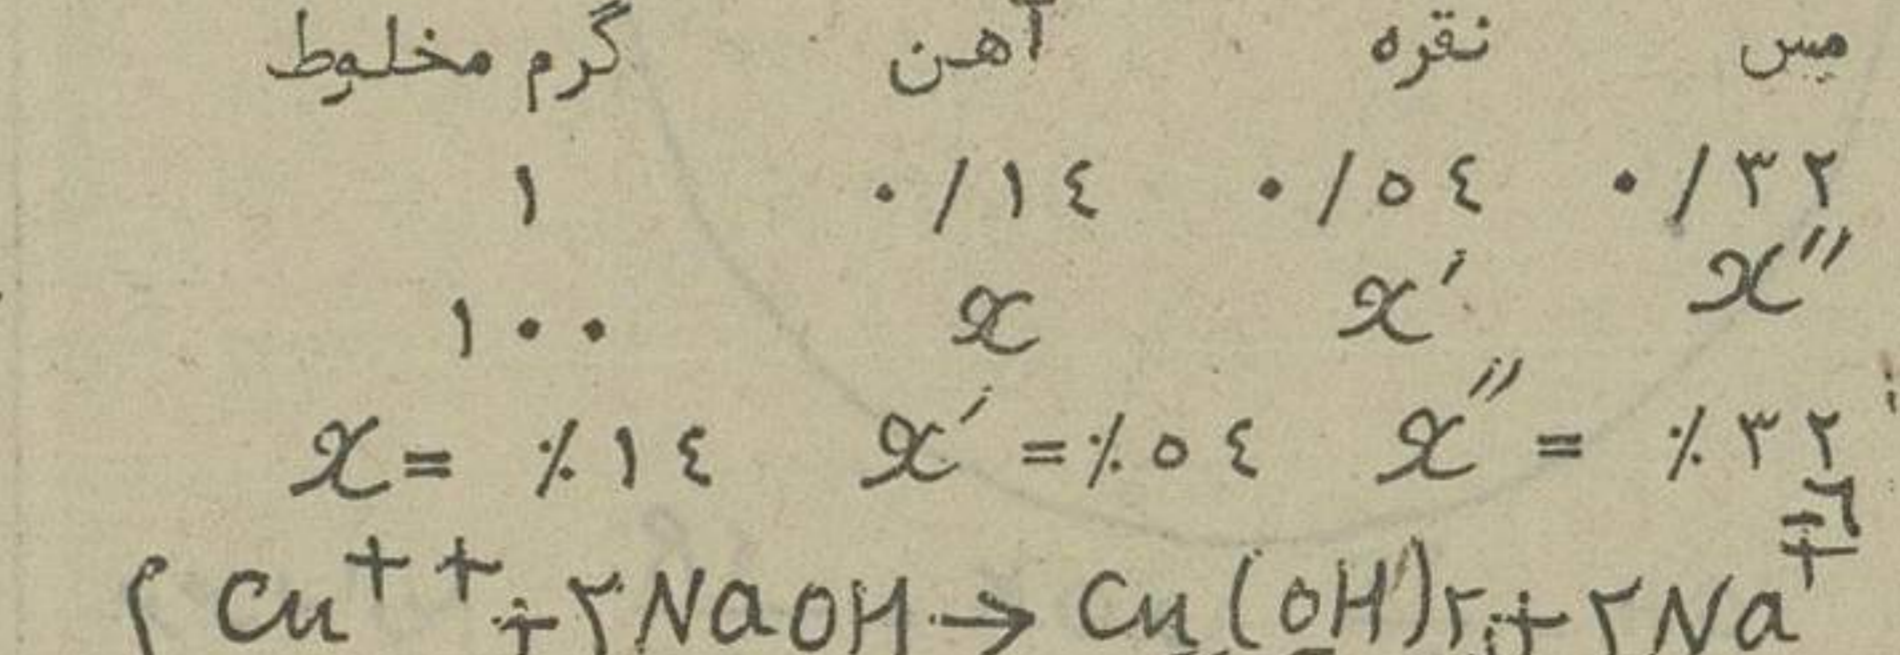 گرم مخلوط آهن نقره مس
۱ ۰/۱٤ ۰/٥٤ ۰/۳۲
۱۰۰ x x′ x″
x = ٪۱٤ x′ = ٪٥٤ x″ = ٪۳۲
{ Cu⁺⁺ + ۲NaOH → Cu(OH)۲ + ۲Na⁺